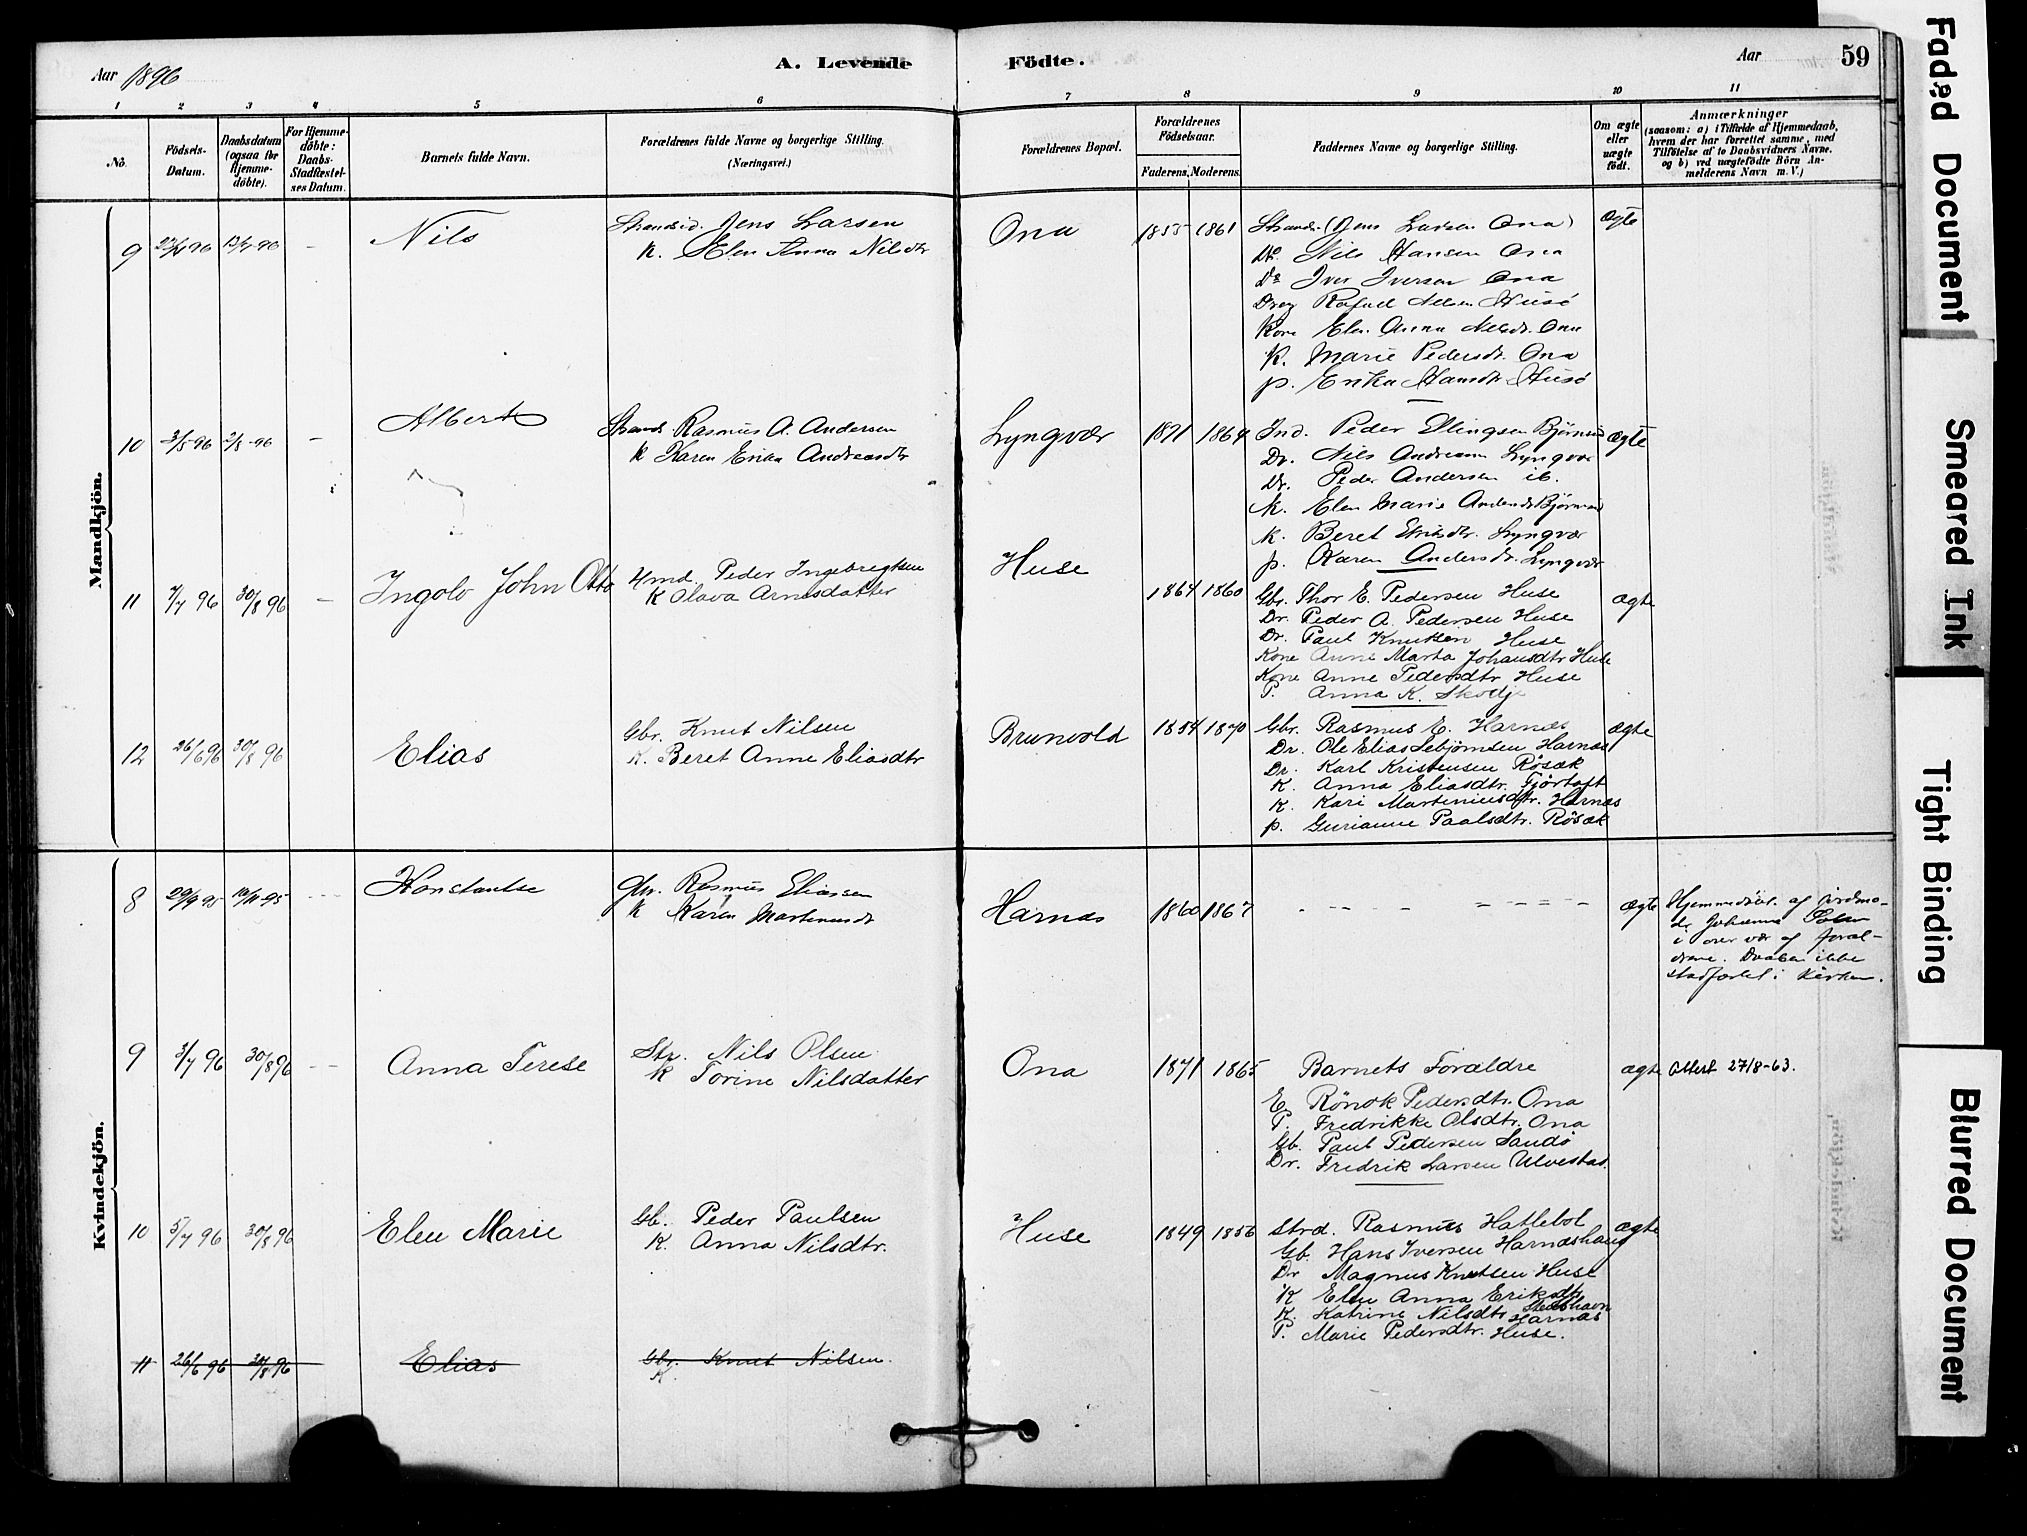 Aar 1896
A. Levende
Födte.
Aar
59
1 2 3 4 5 6 7 8 9 10 11
No.
Födsels-Datum.
Daabsdatum (ogsaa for Hjemme-döbte).
For Hjemme-döbte: Daabs-Stadfæstel-ses Datum.
Barnets fulde Navn.
Forældrenes fulde Navne og borgerlige Stilling.
(Næringsvei.)
Forældrenes Bopæl.
Forældrenes Födselsaar.
Faderens. Moderens.
Faddernes Navne og borgerlige Stilling.
Om ægte eller uægte födt.
Anmærkninger
(saasom: a) i Tilfælde af Hjemmedaab,
hvem der har forrettet samme, med
Tilföielse af to Daabsvidners Navne.
og b) ved uægtefödte Börn An-
melderens Navn m. V.)
Mandkjön.
9 – Nils
Strandsid. Jens Larsen
K. Elen Anna Nilsdtr
Ona 1855 1861
Strands. (Jens Larsen Ona)
Do. Nils Hansen Ona
Do Iver Iversen Ona
Dreg Rafael Nilsen Husö
Kone Elen Anna Nilsdr. Ona
K. Marie Pedersdr. Ona
p. Erika Hansdtr Husö
ægte
10 3/5-96 – Albert
Strands Rasmus A. Andersen
K Karen Erika Andreasdtr
Lyngvær 1871 1864
Ind. Peder Ellingsen
Dr. Nils Andreasen Lyngvær
Dr. Peder Andersen ib.
K. Elen Marie
K. Beret Eriksdtr. Lyngvær
p. Karen Andersdr. Lyngvær
ægte
11 7/7 96 30/8 96 – Ingolv John Otto
Hmd. Peder Ingebregtsen
K Olava Arnesdatter
Huse 1864 1860
Gbr. Thor E. Pedersen Huse
Dr. Peder A. Pedersen Huse
Dr. Paul Knutsen Huse
Kone Anne Marta Johansdtr Huse
Kone Anne Pedersdtr Huse
P. Anna K. Skodje
ægte
12 26/6 96 30/8 96 Elias
Gbr. Knut Nilsen
K. Beret Anne Eliasdtr
Brunvold 1854 1870
Gbr. Rasmus E. Harnæs
Dr. Ole Elias Sebjørnsen Harnæs
Dr. Karl Kristensen Røsæk
K. Anna Eliasdtr. Fjørtoft
K. Kari Martiniusdtr. Harnæs
p. Gurianne Paalsdtr. Røsæk
ægte
Kvindekjön.
8 29/9 95 Konstantse
Gbr. Rasmus Eliassen
K Karen Martinusdr
Harnæs 1860 1867
ægte
Hjemmedöbt af Jordmo-
der Johanna
i overvær af foræl-
drene. Daaben ikke
stadfæstet i Kirken.
9 3/7 96 30/8 96 Anna Terese
Str. Nils Olsen
K Torine Nilsdatter
Ona 1871 1865
Barnets Forældre
E. Rönok Pedersdtr. Ona
P. Fredrikke Olsdtr. Ona
Gb. Paul Pedersen Sandø
Dr. Fredrik Larsen Ulvestad.
ægte Attest 27/8-63.
10 5/7 96 30/8 96 Elen Marie
Gb. Peder Paulsen
K. Anna Nilsdtr.
Huse 1849 1856
Strd. Rasmus Hatlebol
Gb. Hans Iversen Harnæshaug
Dr Magnus Knutsen Huse
K Elen Anna Eriksdtr
K. Katrine Nilsdtr Harnæs
P. Marie Pedersdtr. Huse.
ægte
11 26/6 96 30/8 96 Elias
Gbr. Knut Nilsen.
K.
Faded Document
Smeared Ink
Tight Binding
Blurred Document